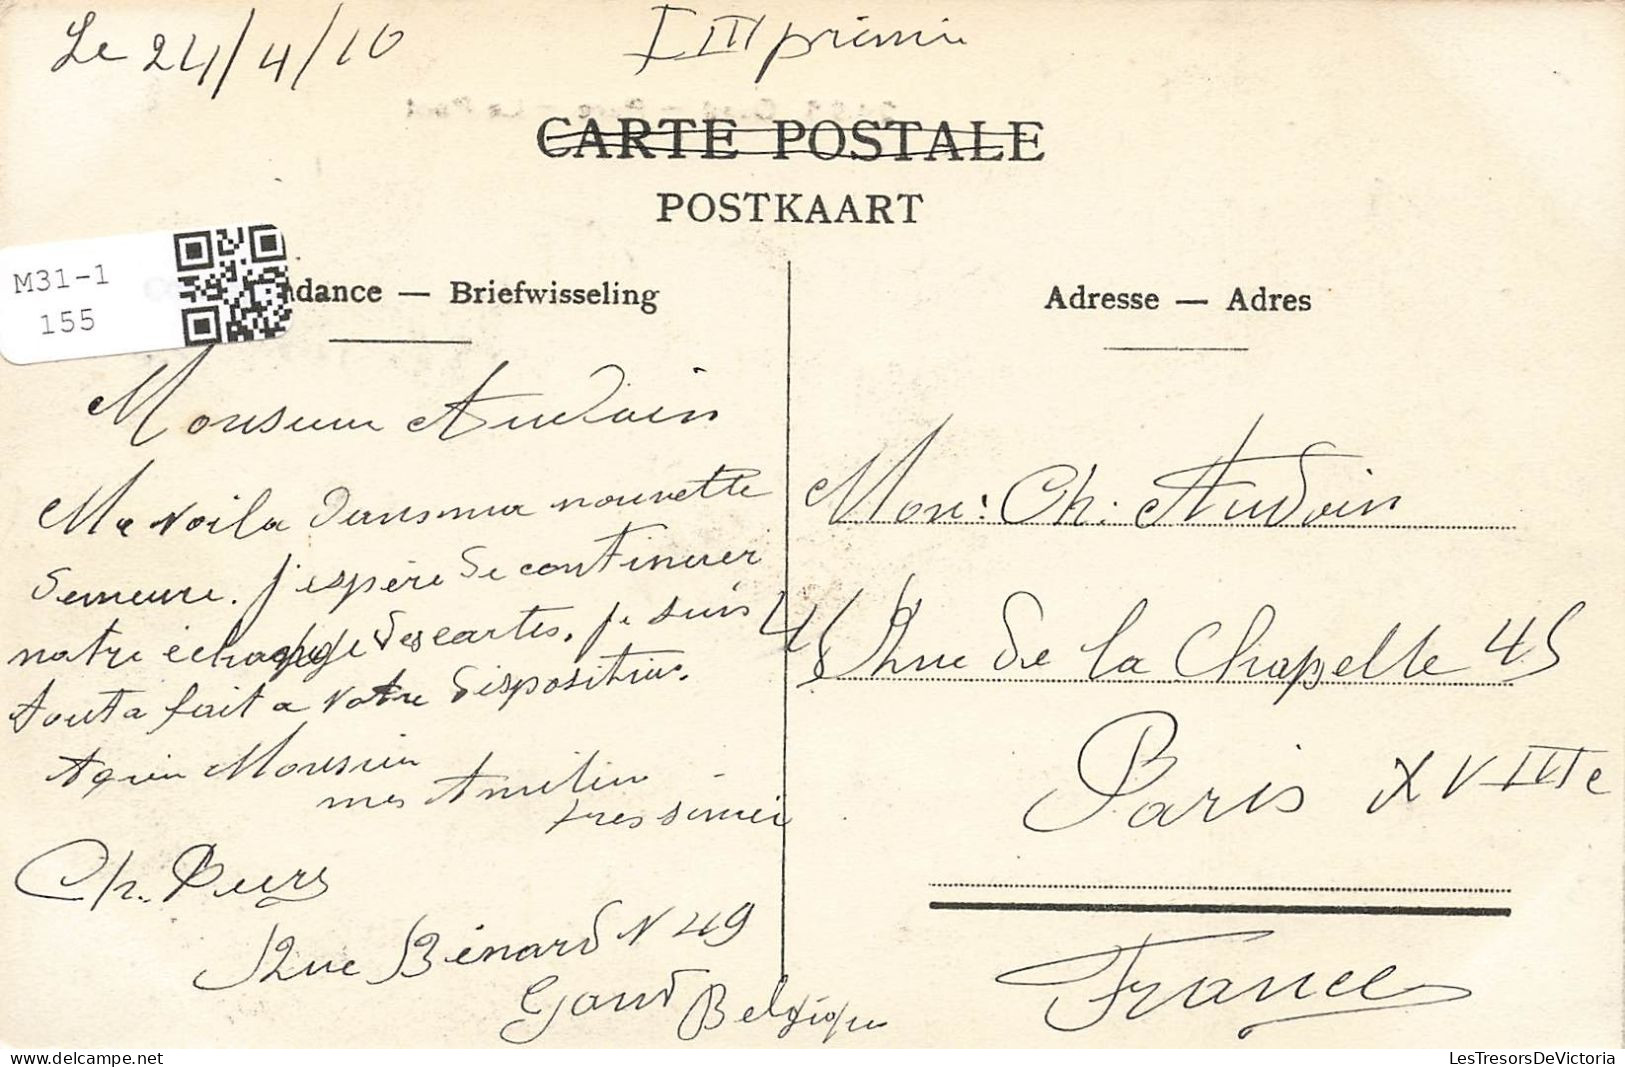 Le 24/4/10
CARTE POSTALE
POSTKAART
M31-1
155
ndance — Briefwisseling
Adresse — Adres
Monsieur Audoin
Me voila dans ma nouvelle
demeure. j'espère de continuer
notre échange des cartes, je suis
tout a fait a votre disposition.
Monsieur
mes Amitiés
tres sincèr
Ch. Puers
Rue Bénard N 49
Gand Belgique
Mon: Ch: Audoin
45 Rue de la Chapelle 45
Paris XVIIIe
France
LesTresorsDeVictoria